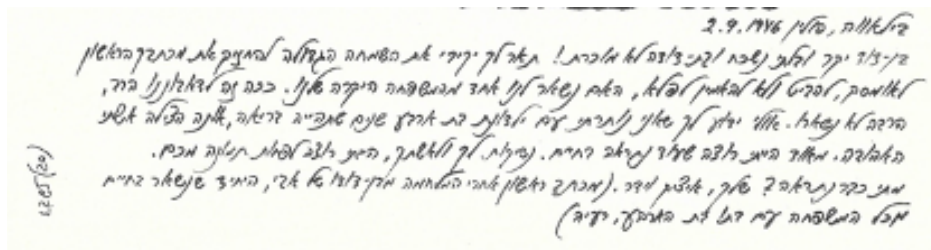 בילאווה, פולין 2.9.1946
בן-דוד יקר ובלתי נשכח ובת-דודה לא מוכרת! תאר לך יקירי את השמחה הגדולה להחזיק את מכתבך הראשון
להביט ולא להאמין לפלא, האם נשאר לנו אחד מהמשפחה היקרה שלנו. ככה זה לדאבוננו הרב,
הרבה לא נשארו. אולי ידוע לך שאני נותרתי עם ילדונת בת ארבע שנים שתהייה בריאה, אותה הצילה אשתי
האהובה. מאוד הייתי רוצה שעוד נתראה בחיים. נשיקות לך ולאשתך, הייתי רוצה לראות תמונה מכם.
מתי כבר נתראה? שלך, איציק וידר. (מכתב ראשון אחרי המלחמה מבן-דודו של אבי, היחיד שנשאר בחיים
מכל המשפחה עם בתו בת הארבע, רעיה)